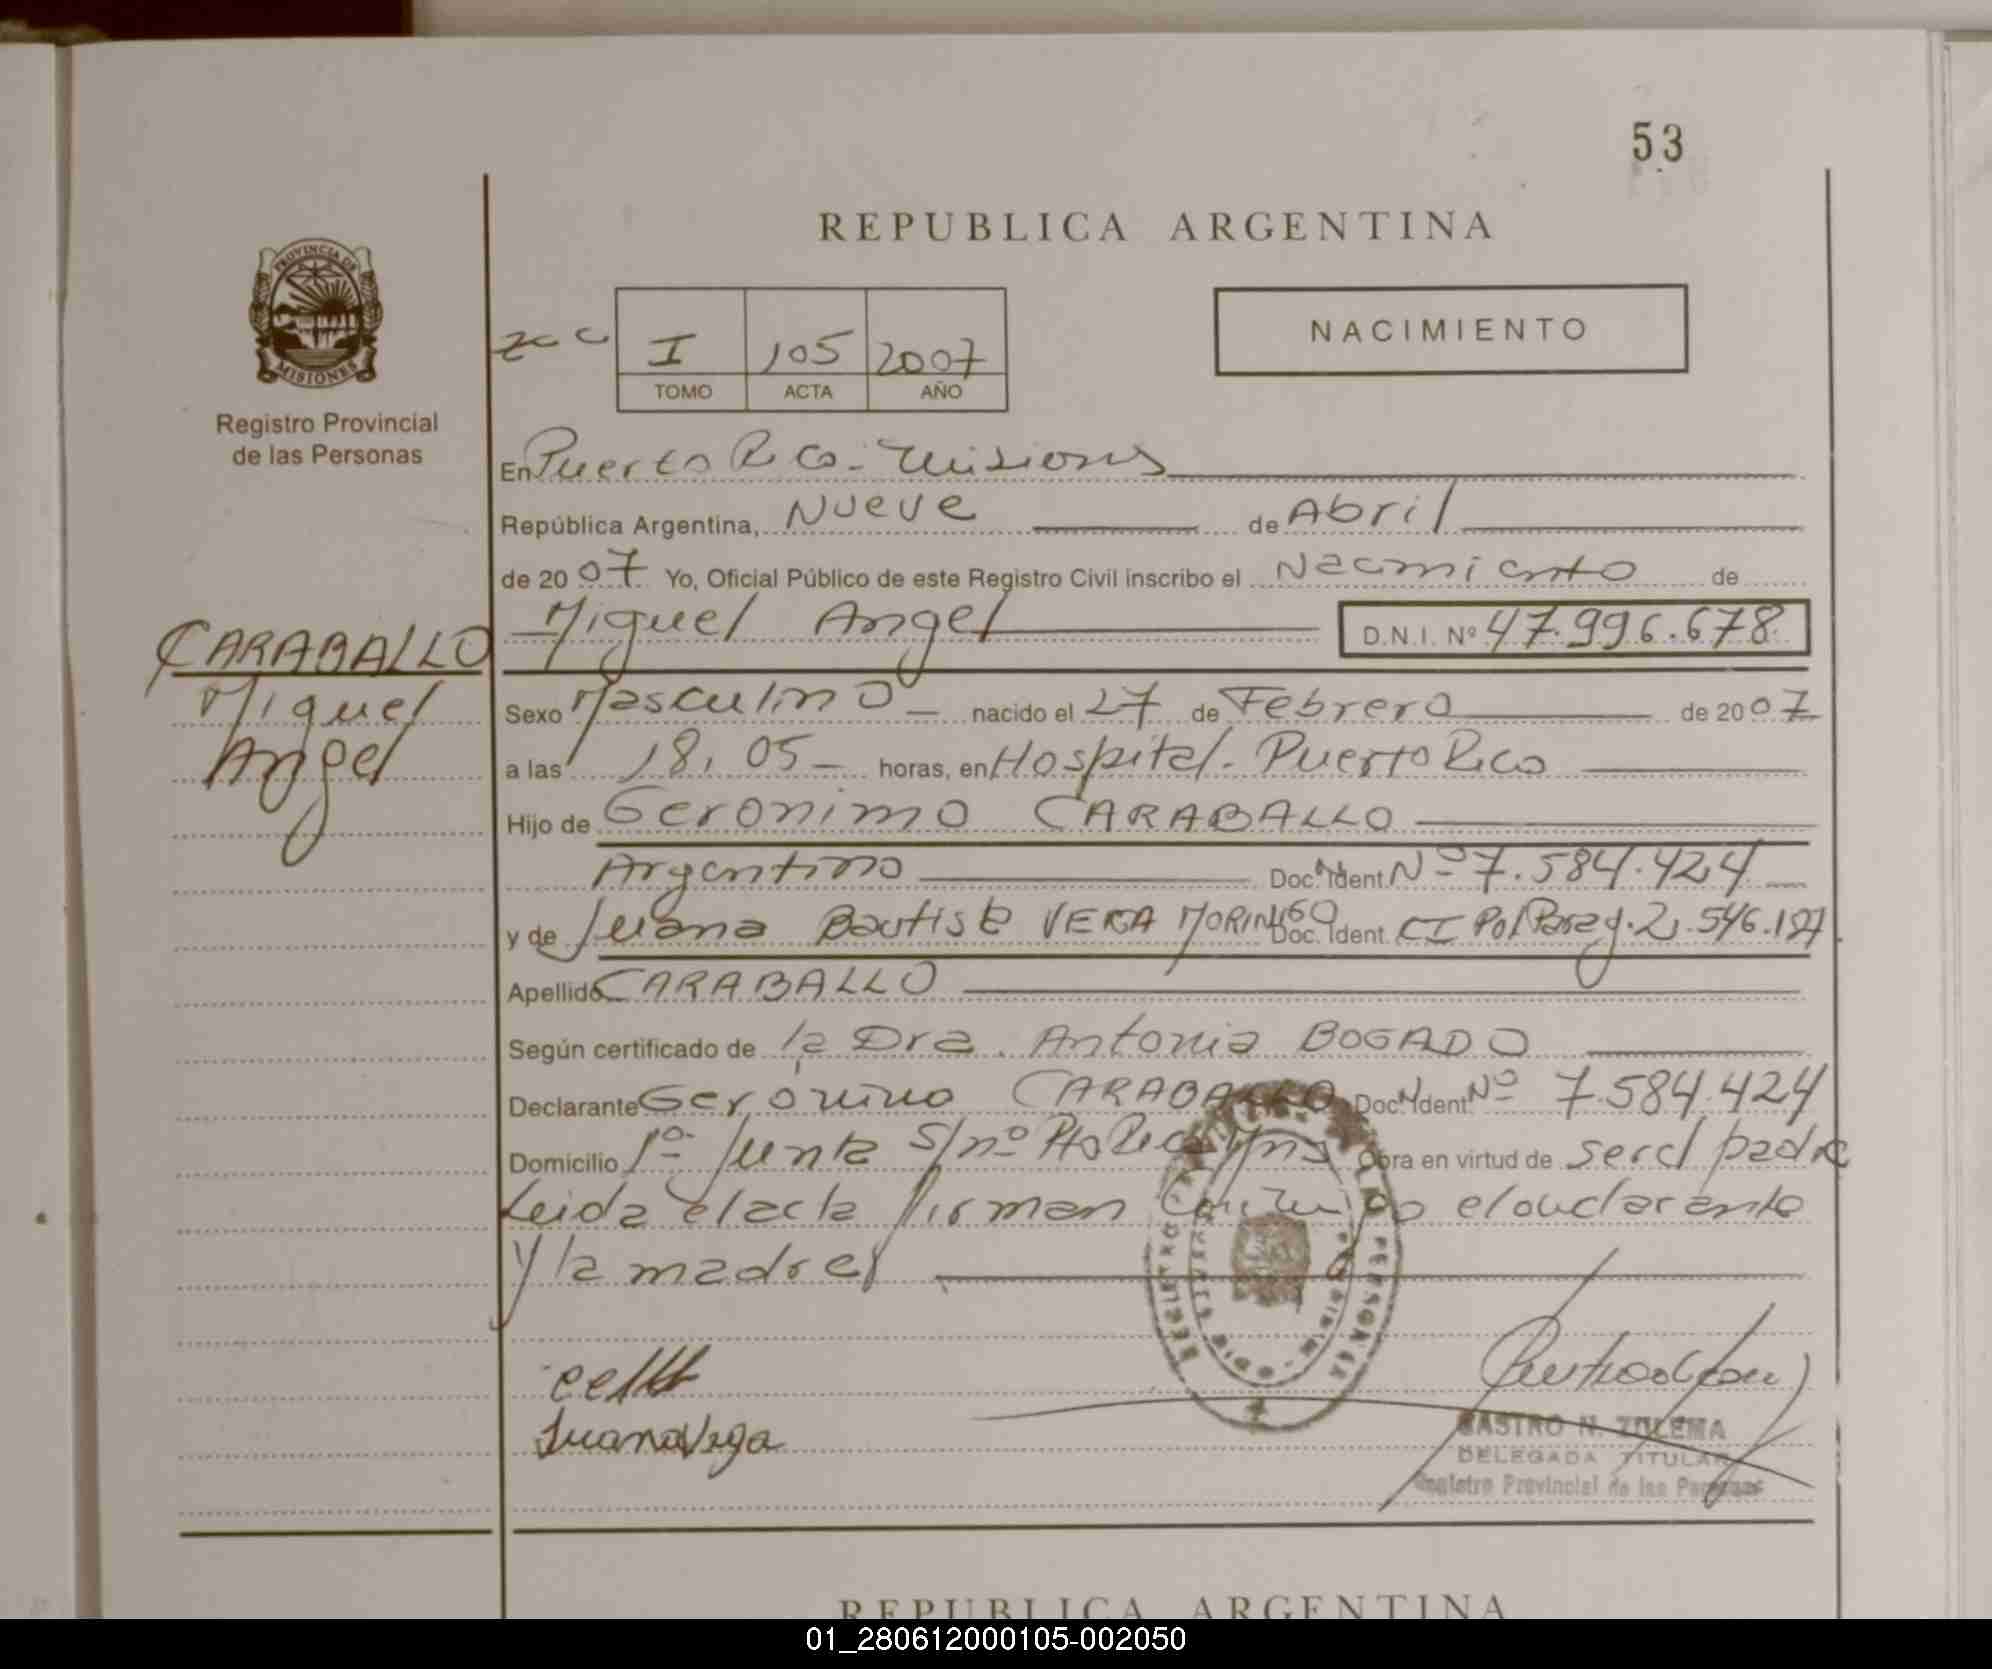 53
REPUBLICA ARGENTINA
PROVINCIA DE
MISIONES
Registro Provincial
de las Personas
NACIMIENTO
I 105 2007
TOMO ACTA AÑO
En Puerto Rico - Misiones
República Argentina, Nueve de Abril
de 2007 Yo, Oficial Público de este Registro Civil inscribo el Nacimiento de
Miguel Angel D.N.I. Nº 47.996.678
CARABALLO
Miguel
Angel
Sexo Masculino - nacido el 27 de Febrero de 2007
a las 18,05 - horas, en Hospital - Puerto Rico
Hijo de Geronimo CARABALLO
Argentino Doc. Ident. Nº 7.584.424
y de Juana Bautista Doc. Ident. CI Pol Parag. 2.546.
Apellido CARABALLO
Según certificado de la Dra. Antonia BOGADO
Declarante Gerónimo CARABALLO Doc. Ident. Nº 7.584.424
Domicilio 1º Junta S/nº Pto Rico Mns Obra en virtud de ser el padre
Leida el acta firman conmigo el declarante
y la madre
Juana Vega
CASTRO N. ZULEMA
DELEGADA TITULAR
Registro Provincial de las Personas
REPUBLICA ARGENTINA
01_280612000105-002050